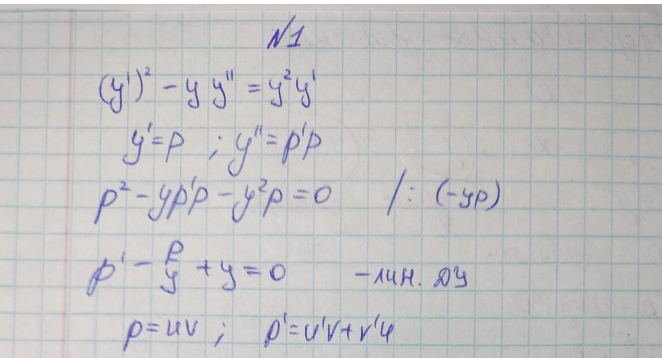 №1
(y')² - y y'' = y²y'
y' = p ; y'' = p'p
p² - yp'p - y²p = 0 /: (-yp)
p' - p/y + y = 0 - лин. ДУ
p = uv ; p' = u'v + v'u